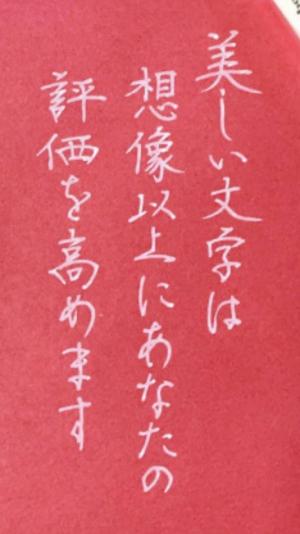 美しい文字は
想像以上にあなたの
評価を高めます